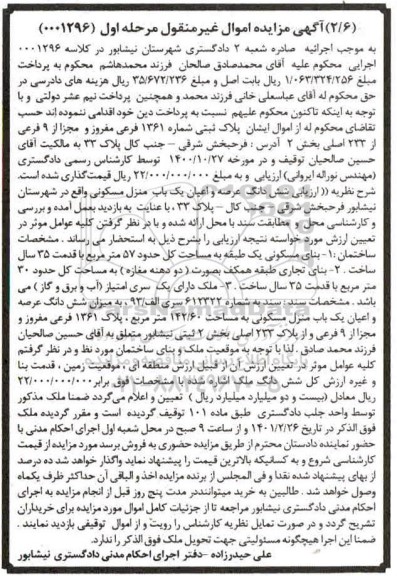 (۲/۶) آگهی مزایده اموال غیرمنقول مرحله اول (۰۰۰۱۲۹۶)
به موجب اجرائیه صادره شعبه ۲ دادگستری شهرستان نیشابور در کلاسه ۰۰۰۱۲۹۶
اجرایی محکوم علیه آقای محمدصادق صالحان فرزند محمدهاشم محکوم به پرداخت
مبلغ ۱/۰۶۳/۳۲۴/۲۵۶ ریال بابت اصل و مبلغ ۳۵/۶۷۲/۲۳۶ ریال هزینه های دادرسی در
حق محکوم له آقای عباسعلی خانی فرزند محمد و همچنین پرداخت نیم عشر دولتی و با
توجه به اینکه تاکنون محکوم علیهم نسبت به پرداخت دین خود اقدامی ننموده اند حسب
تقاضای محکوم له از اموال ایشان پلاک ثبتی شماره ۱۳۶۱ فرعی مفروز و مجزا از ۹ فرعی
از ۲۳۳ اصلی بخش ۲ آدرس : فرحبخش شرقی - جنب کال پلاک ۳۳ به مالکیت آقای
حسین صالحیان توقیف و در مورخه ۱۴۰۰/۱۰/۲۷ توسط کارشناس رسمی دادگستری
(مهندس نوراله ایروانی) ارزیابی و به مبلغ ۲۲/۰۰۰/۰۰۰/۰۰۰ ریال قیمت‌گذاری شده است.
شرح نظریه (( ارزیابی شش دانگ عرصه و اعیان یک باب منزل مسکونی واقع در شهرستان
نیشابور فرحبخش شرقی - جنب کال - پلاک ۳۳ ، با عنایت به بازدید بعمل آمده و بررسی
و کارشناسی محل و مطابقت سند با محل ارائه شده و با در نظر گرفتن کلیه عوامل موثر در
تعیین ارزش مورد خواسته نتیجه ارزیابی را بشرح ذیل به استحضار می رساند . مشخصات
ساختمان :۱- بنای مسکونی یک طبقه به مساحت کل حدود ۵۷ متر مربع با قدمت ۳۵ سال
ساخت .۲- بنای تجاری طبقه همکف بصورت (دو دهنه مغازه) به مساحت کل حدود ۳۰
متر مربع با قدمت ۳۵ سال ساخت .۳- ملک دارای یک سری امتیاز (آب و برق و گاز) می
باشد . مشخصات سند: سند به شماره ۶۱۲۳۲۲ سری الف۹۳ ، به میزان شش دانگ عرصه
و اعیان یک باب منزل مسکونی به مساحت ۱۴۲/۶۰ متر مربع ، پلاک ۱۳۶۱ فرعی مفروز و
مجزا از ۹ فرعی و از پلاک ۲۳۳ اصلی بخش ۲ ثبتی نیشابور متعلق به آقای حسین صالحیان
فرزند محمد صادق . لذا با توجه به موقعیت ملک و بنای ساختمان مورد نظر و در نظر گرفتم
کلیه عوامل موثر در تعیین ارزش آن از قبیل ارزش منطقه ای ، موقعیت زمین ، قدمت بنا
و غیره ارزش کل شش دانگ ملک اشاره شده با مشخصات فوق برابر ۲۲/۰۰۰/۰۰۰/۰۰۰
ریال معادل (بیست و دو میلیارد میلیارد ریال ) تعیین و اعلام می‌گردد ضمنا ملک مذکور
توسط واحد جلب دادگستری طبق ماده ۱۰۱ توقیف گردیده است و مقرر گردیده ملک
فوق الذکر در تاریخ ۱۴۰۱/۲/۲۶ و از ساعت ۹ صبح در محل شعبه اول اجرای احکام مدنی با
حضور نماینده دادستان محترم از طریق مزایده حضوری به فروش برسد مورد مزایده از قیمت
کارشناسی شروع و به کسانیکه بالاترین قیمت را پیشنهاد نماید واگذار خواهد شد ده درصد
از بهای پیشنهاد شده نقدا و فی المجلس از برنده مزایده اخذ و الباقی آن حداکثر ظرف یکماه
وصول خواهد شد . طالبین به خرید میتوانند در مدت پنج روز قبل از انجام مزایده به اجرای
احکام مدنی دادگستری نیشابور مراجعه تا از جزئیات کامل اموال مورد مزایده برای خریداران
تشریح گردد و در صورت تمایل نظریه کارشناس را رویت و از اموال توقیفی بازدید نمایند .
ضمنا این اجرا هیچگونه مسئولیتی جهت تحویل ملک فوق الذکر را ندارد.
علی حیدرزاده - دفتر اجرای احکام مدنی دادگستری نیشابور